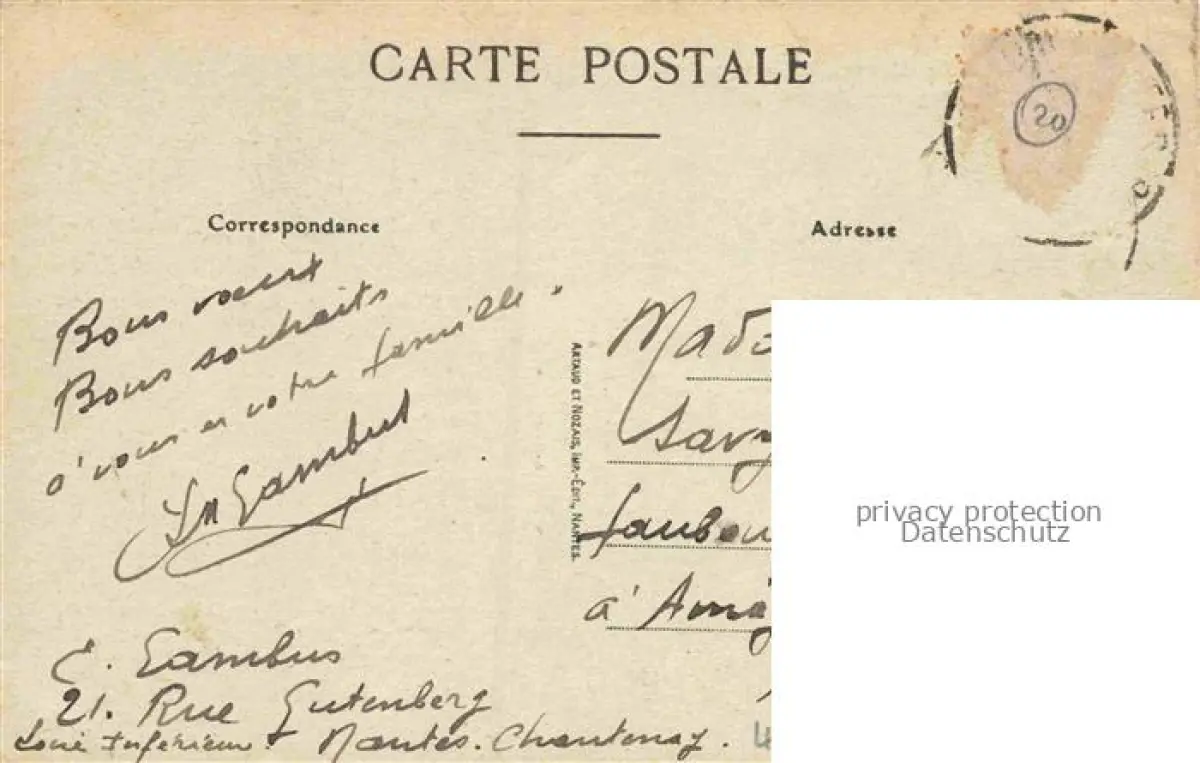 CARTE POSTALE
20
Correspondance
Adresse
Bons vœux
Bons souhaits
à vous et votre famille.
E. Gambus
21. Rue Gutenberg
Loire Inférieure Nantes. Chantenay.
ARTAUD ET NOZAIS, IMP.-ÉDIT., NANTES.
Mad
Savy
faubou
à Ama
privacy protection
Datenschutz